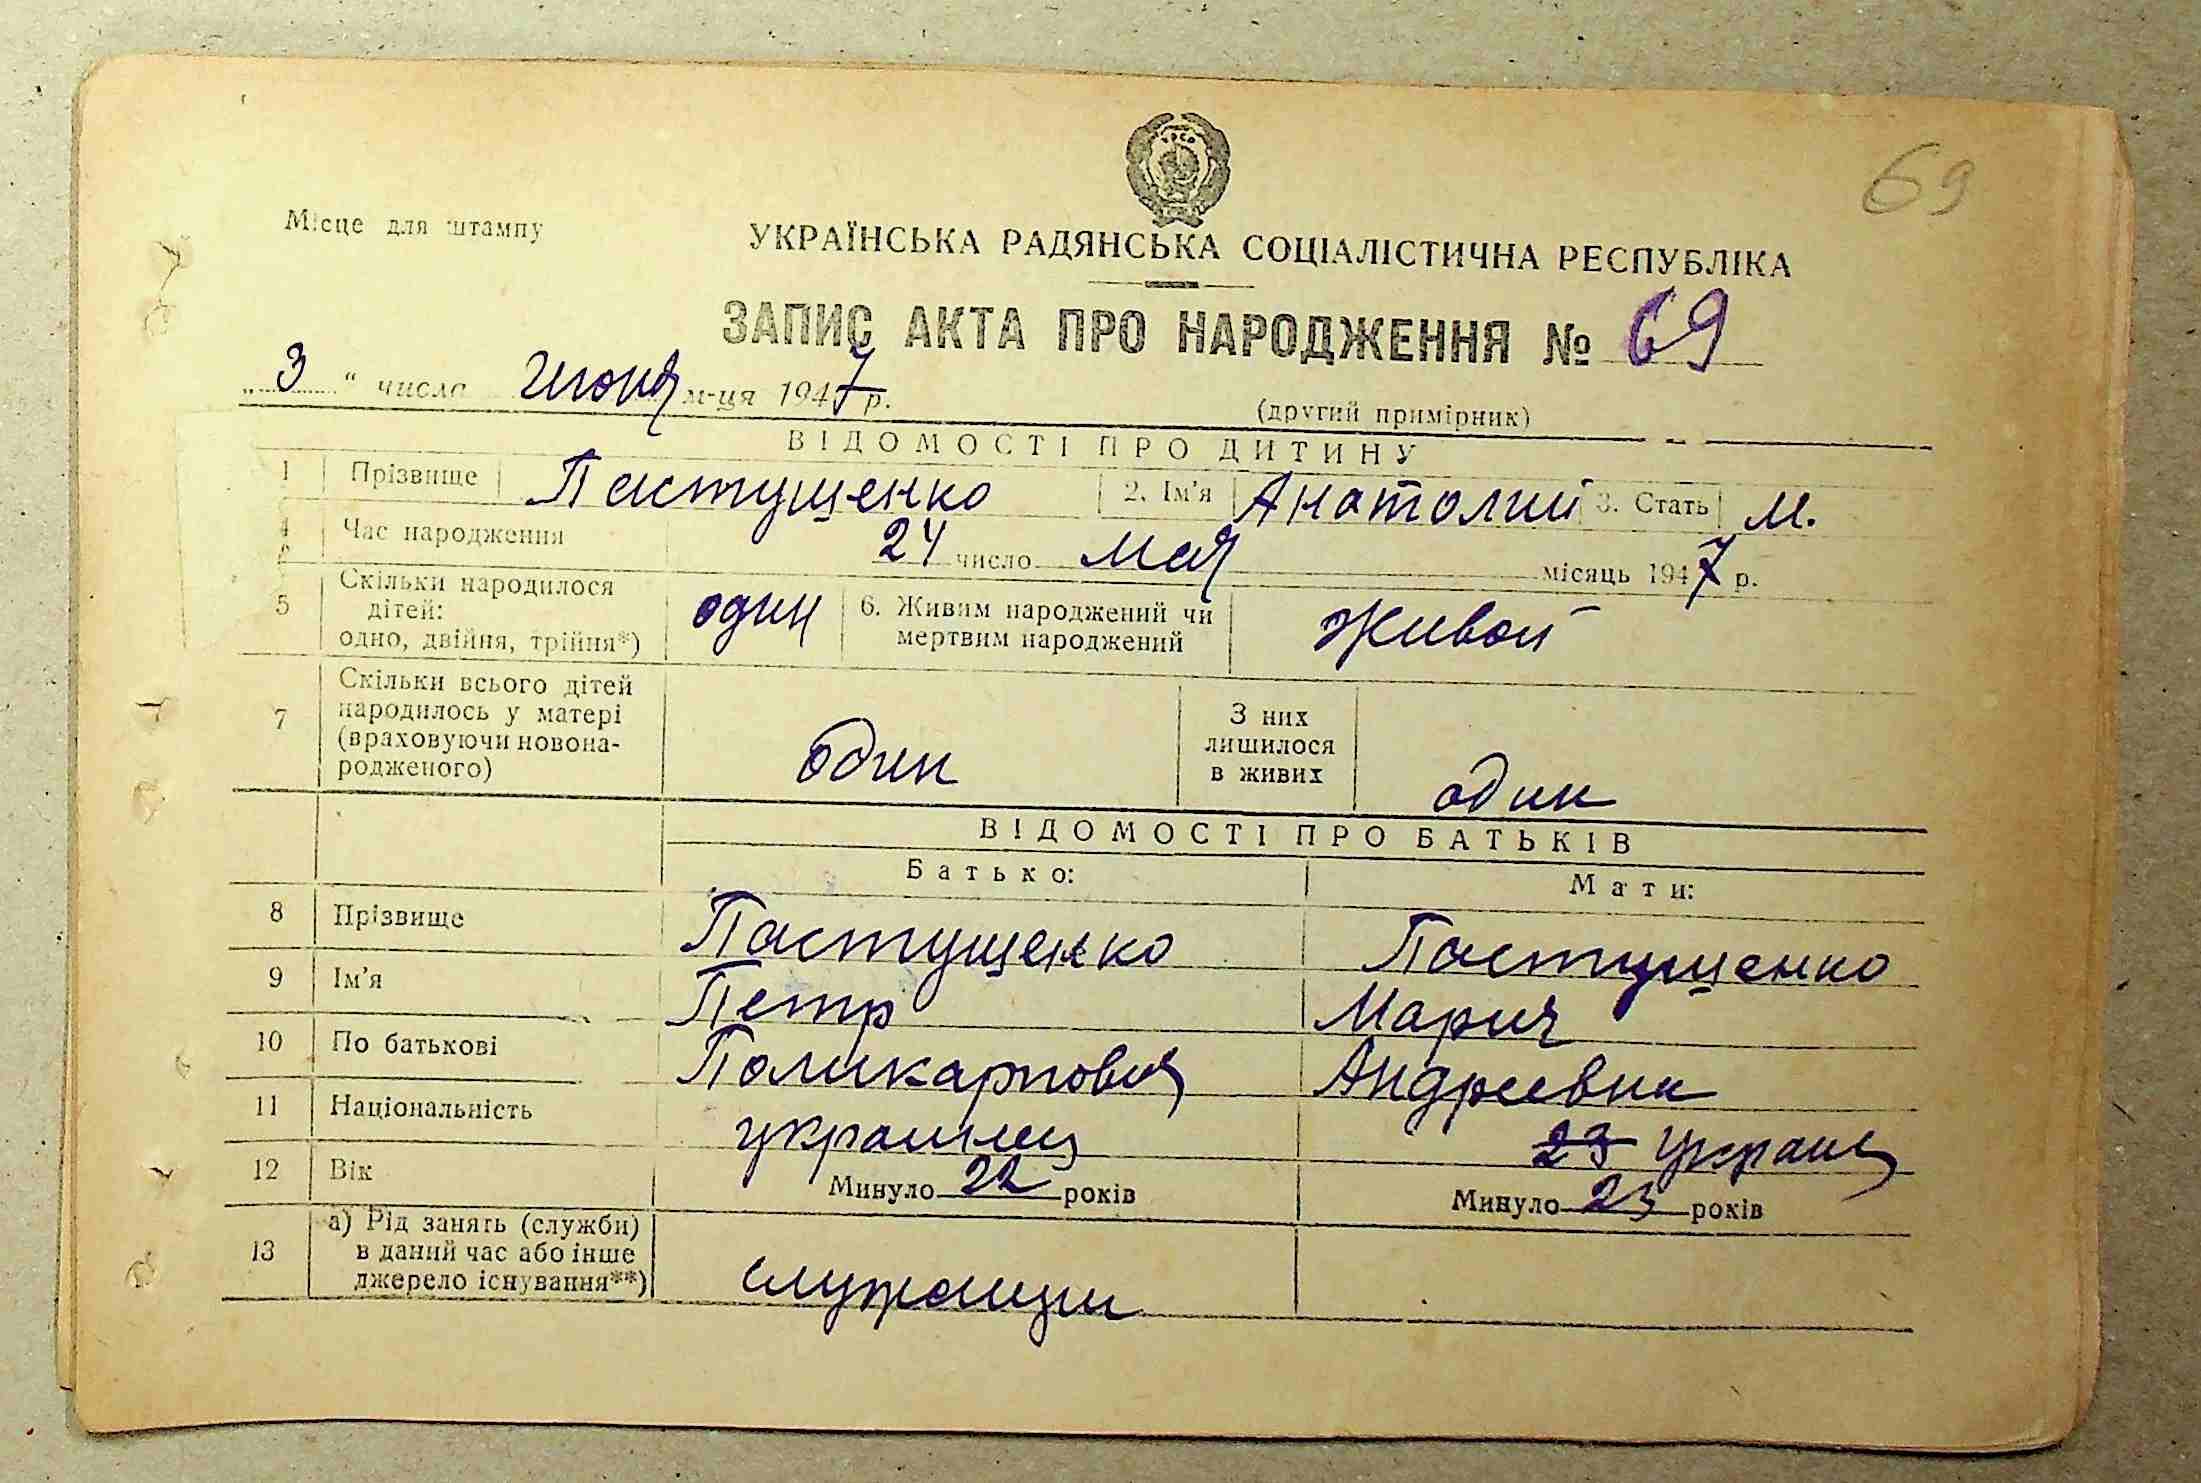 69
Місце для штампу
УКРАЇНСЬКА РАДЯНСЬКА СОЦІАЛІСТИЧНА РЕСПУБЛІКА
ЗАПИС АКТА ПРО НАРОДЖЕННЯ № 69
„ 3 “ числа июня м-ця 1947 р.
(другий примірник)
ВІДОМОСТІ ПРО ДИТИНУ
1 Прізвище Пастущенко 2. Ім'я Анатолий 3. Стать м.
4 Час народження 24 число мая місяць 1947 р.
5 Скільки народилося дітей: одно, двійня, трійня*) один 6. Живим народжений чи мертвим народжений живой
7 Скільки всього дітей народилось у матері (враховуючи новонародженого) один З них лишилося в живих один
ВІДОМОСТІ ПРО БАТЬКІВ
Батько: Мати:
8 Прізвище Пастущенко Пастущенко
9 Ім'я Петр Мария
10 По батькові Поликарпович Андреевна
11 Національність украинец 23 украинц
12 Вік Минуло 22 років Минуло 23 років
13 а) Рід занять (служби) в даний час або інше джерело існування**) служащий